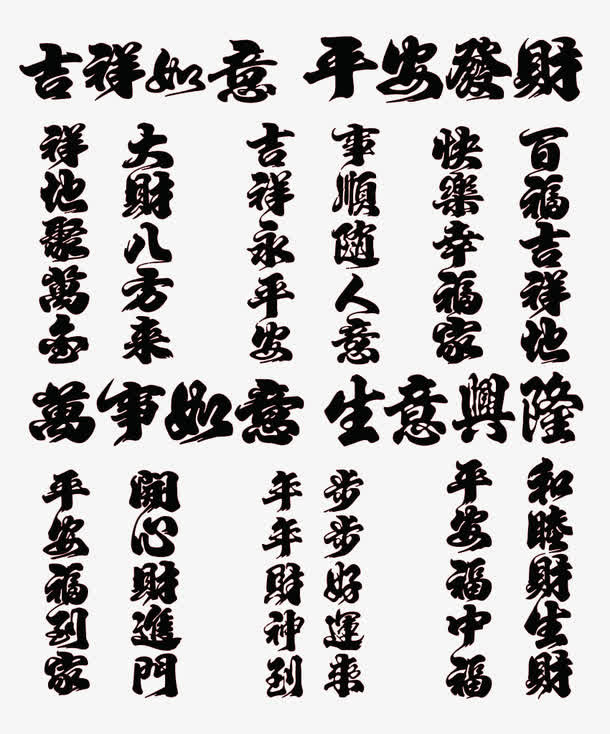 吉祥如意
平安發財
祥地聚萬金
大財八方来
吉祥永平安
事順随人意
快樂幸福家
百福吉祥地
萬事如意
生意興隆
平安福到家
開心財進門
年年財神到
步步好運来
平安福中福
和睦財生財